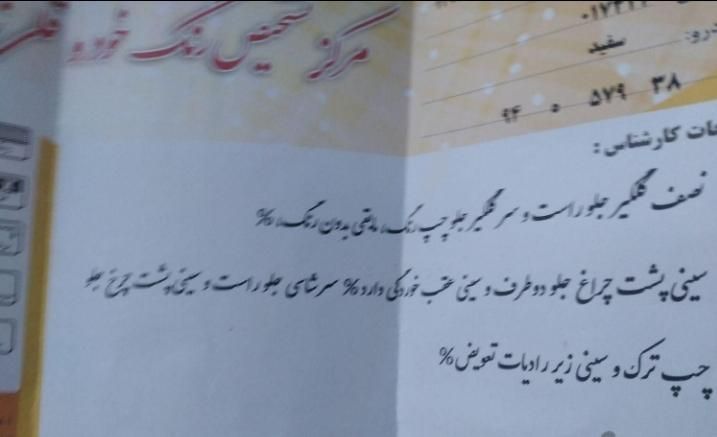 مرکز تشخیص رنگ خودرو
۰۱۷۳۲۱
سفید
۳۸ ۵۷۹ ۵ ۹۴
کارشناس :
نصف گلگیر جلو راست و سر گلگیر جلو چپ رنگ، مابقی بدون رنگ، %
سینی پشت چراغ جلو دو طرف و سینی عقب خوردگی دارد % سر شاسی جلو راست و سینی پشت چرخ جلو
چپ ترک و سینی زیر رادیات تعویض %